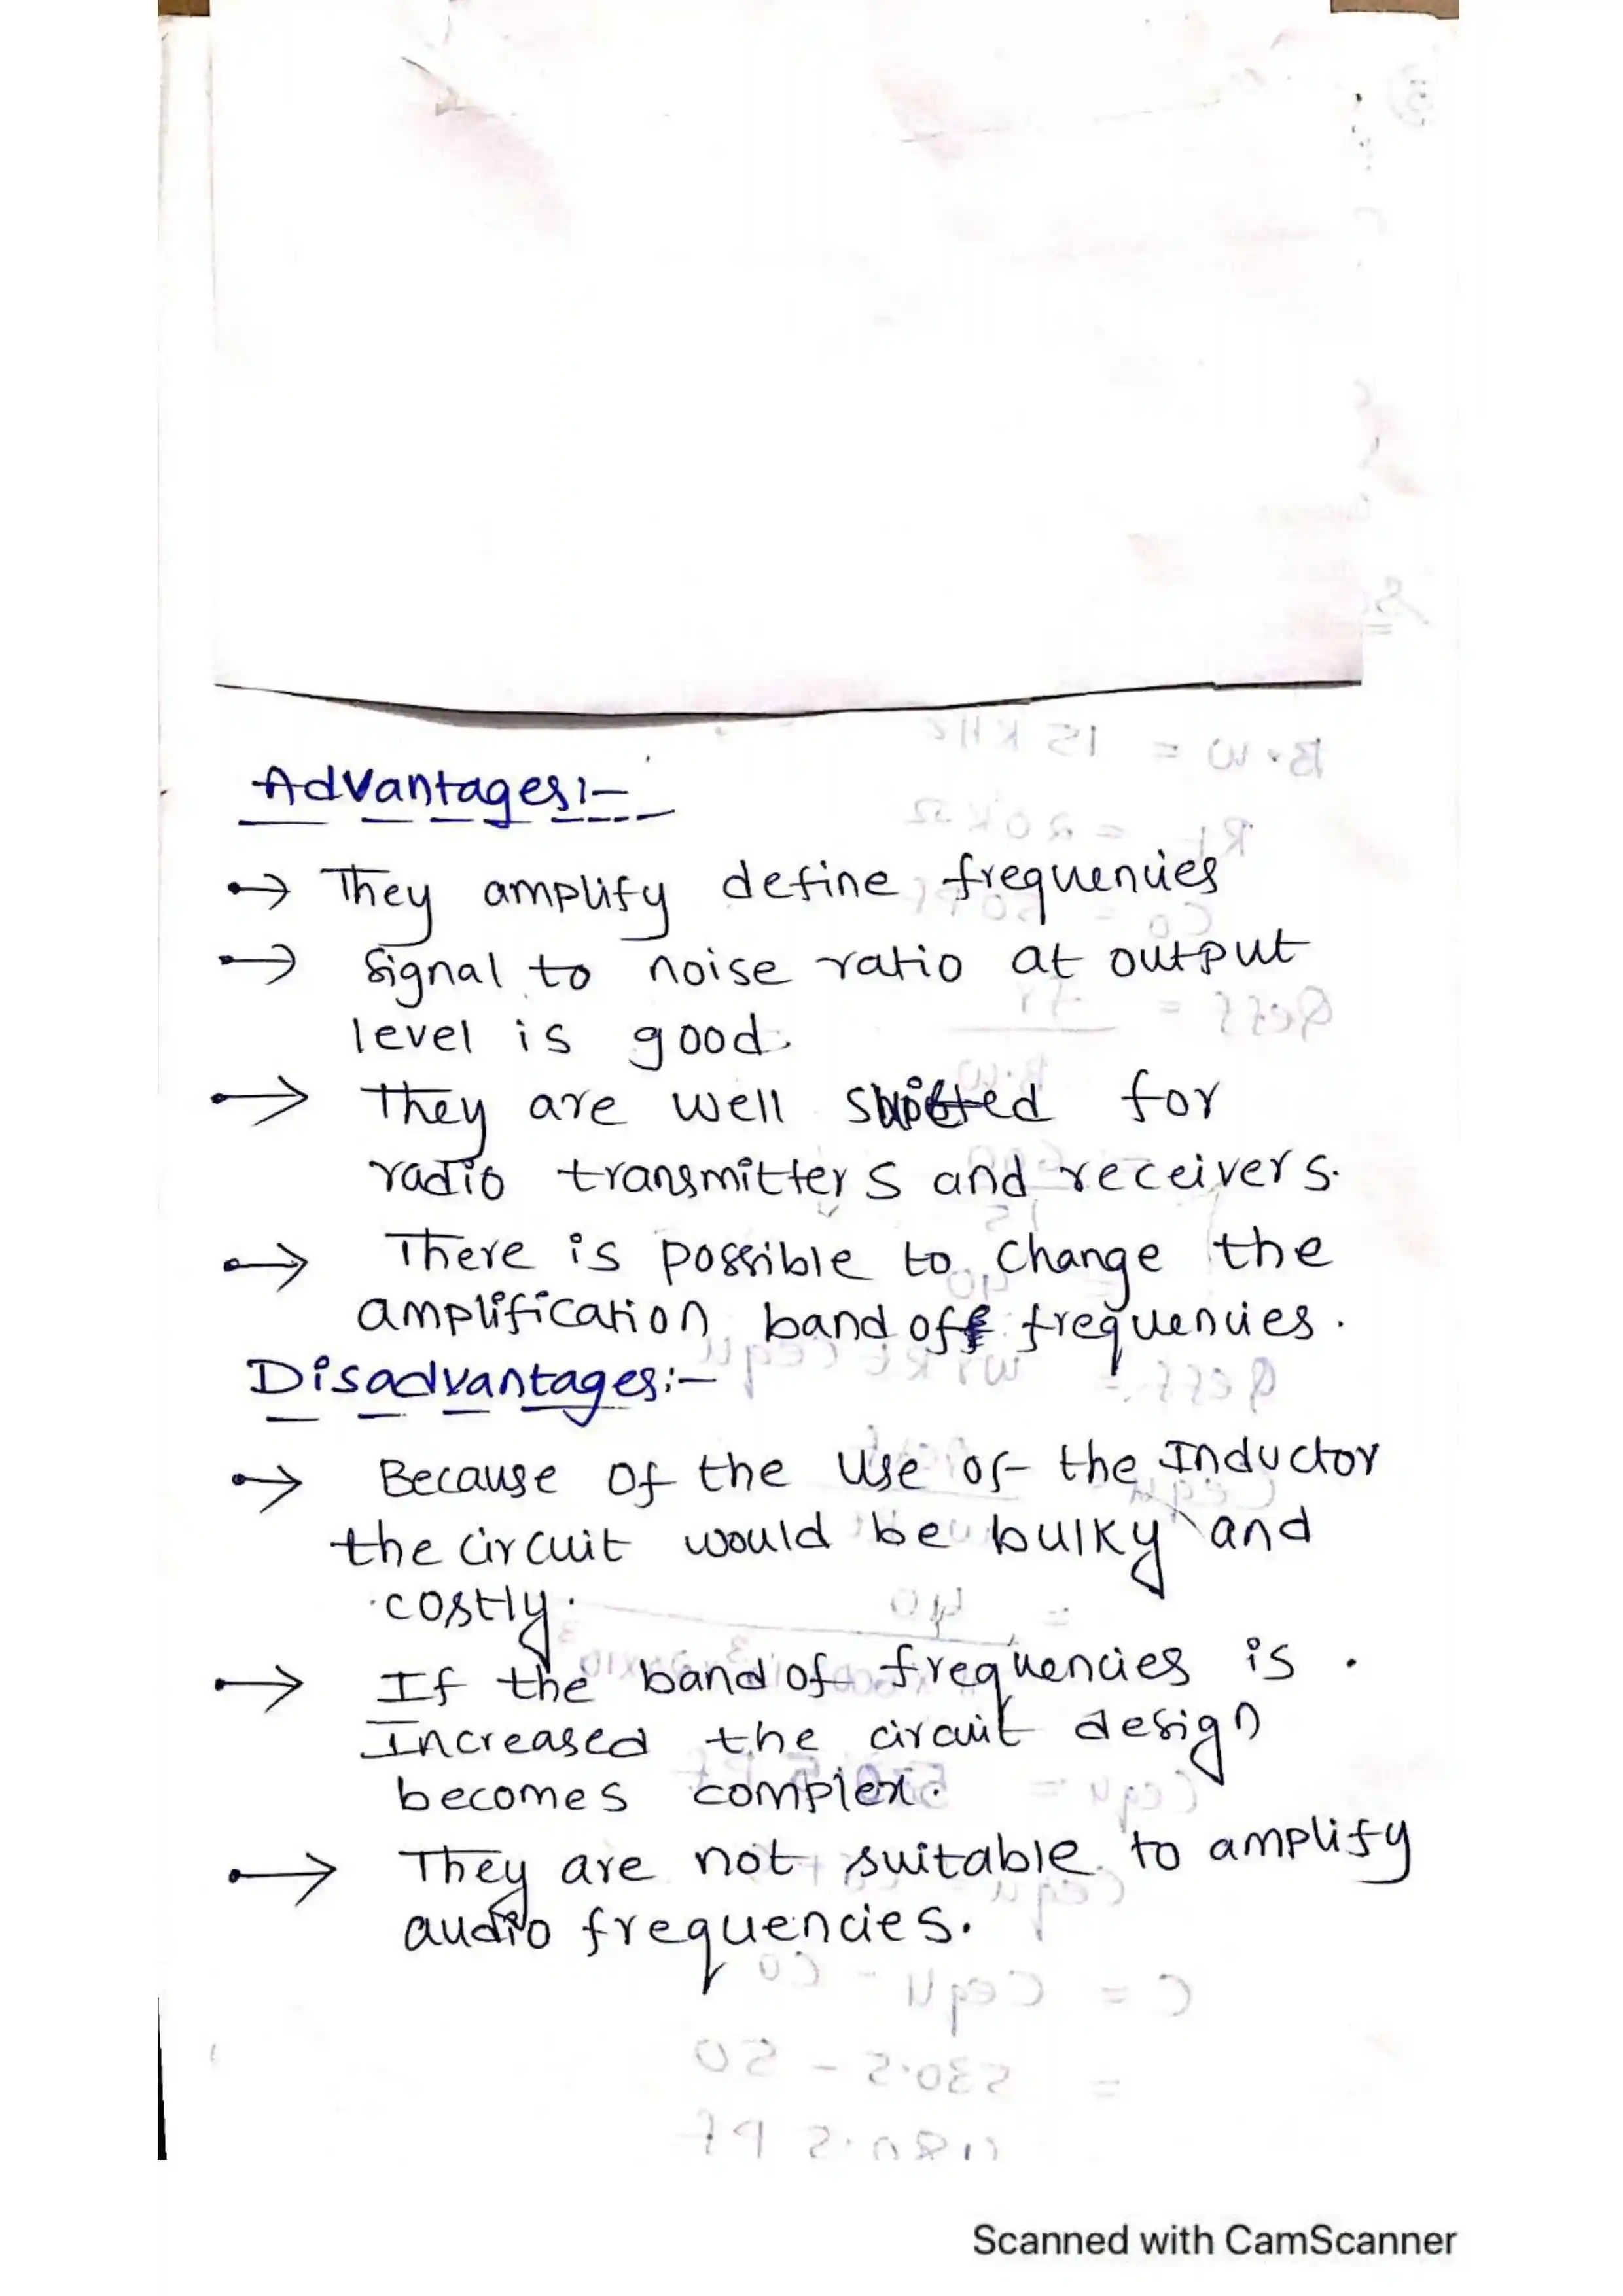 Advantages:-
→ They amplify define frequencies
→ Signal to noise ratio at output
level is good.
→ They are well for
radio transmitters and receivers.
→ There is possible to change the
amplification band of frequencies.
Disadvantages:-
→ Because of the use of the Inductor
the circuit would be bulky and
costly.
→ If the band of frequencies is.
Increased the circuit design
becomes complex.
→ They are not suitable to amplify
audio frequencies.
Scanned with CamScanner